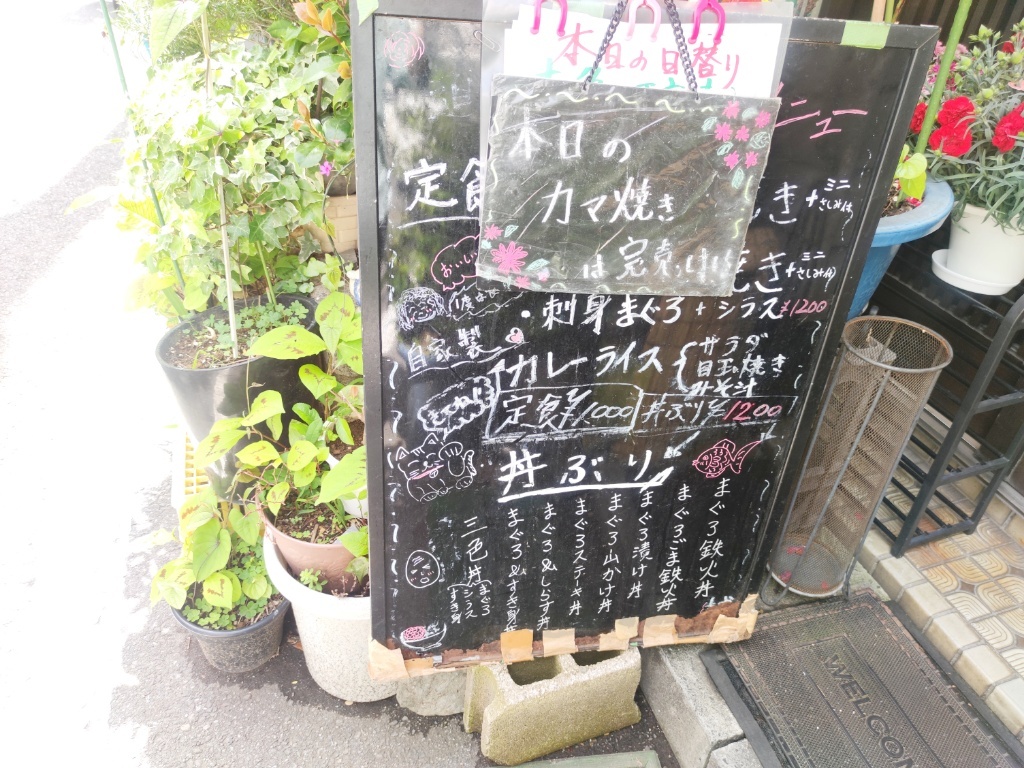 本日の日替り
ニュー
本日の
カマ焼き
は完売
定食
き+ミニさしみ付
き+ミニさしみ付
おいしい
・刺身まぐろ+シラス ¥1200
自家製
カレーライス
サラダ
目玉焼き
みそ汁
定食¥1000
丼ぶり¥1200
丼ぶり
まぐろ鉄火丼
まぐろごま鉄火丼
まぐろ漬け丼
まぐろ山かけ丼
まぐろステーキ丼
まぐろ&しらす丼
まぐろ&すき身丼
三色丼
まぐろ
シラス
すき身
WELCOM